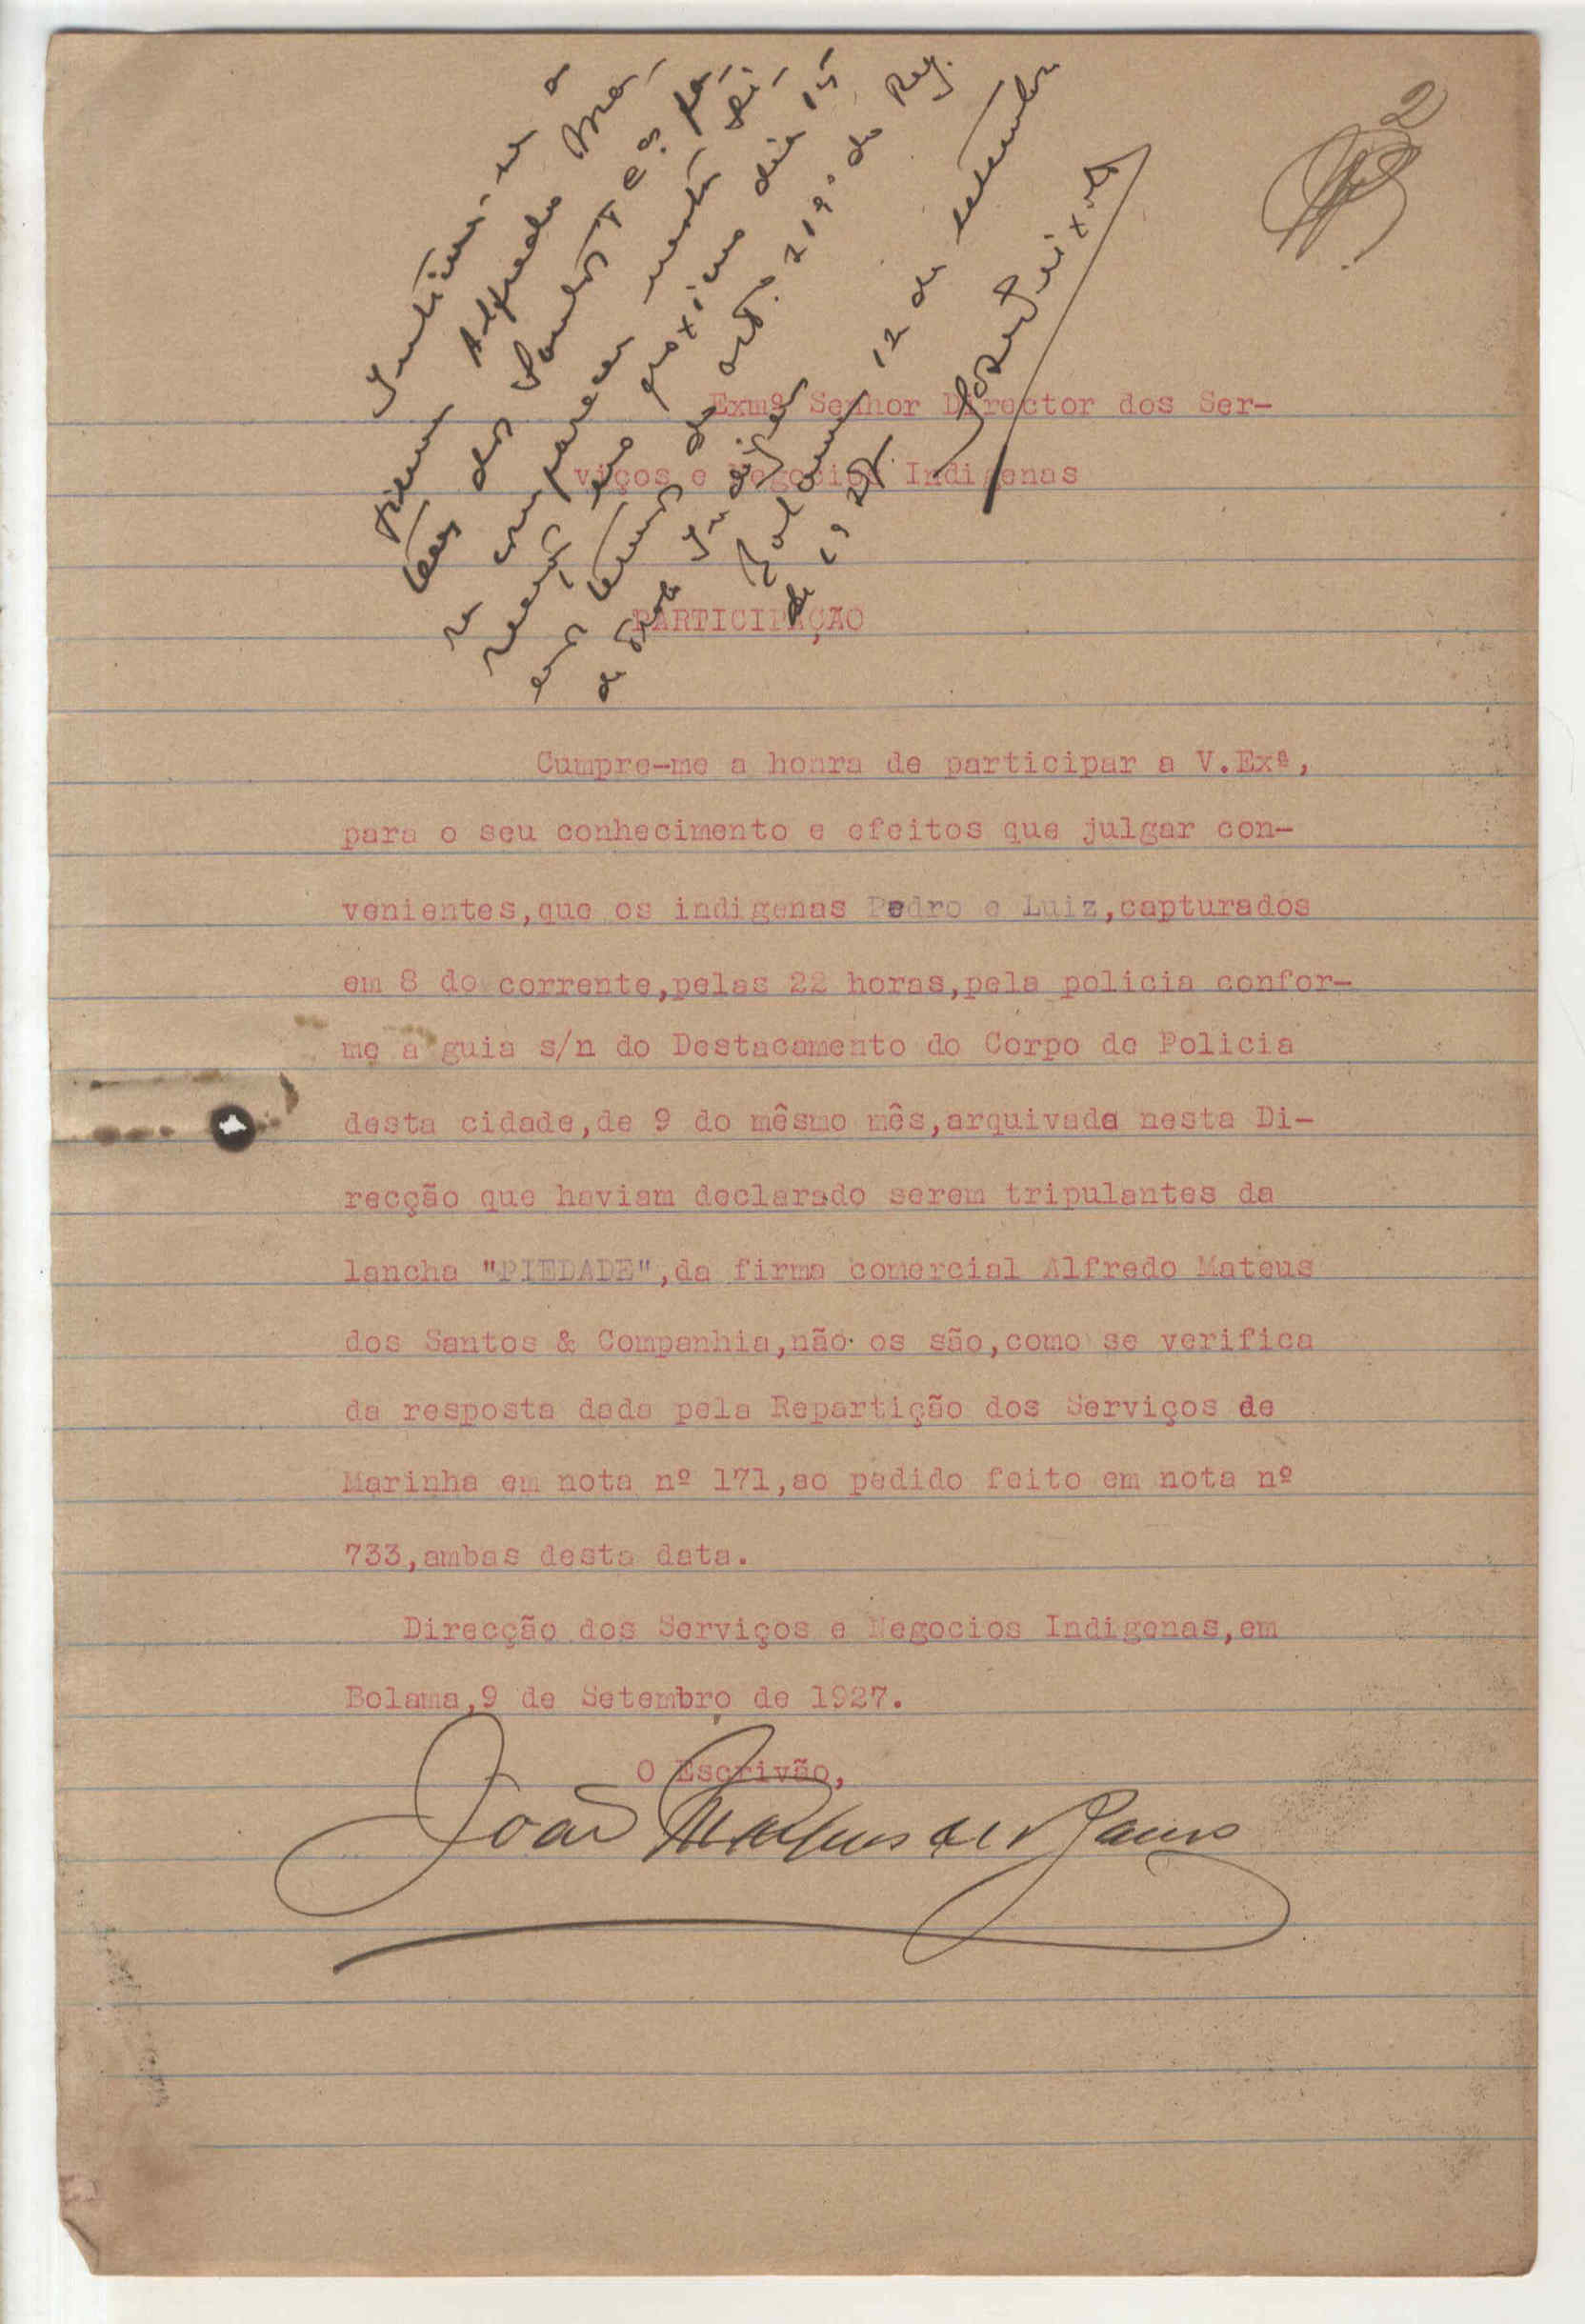 2
Intime-se a
firma Alfredo Ma-
teus dos Santos & Cª pa-
ra comparecer nesta Di-
recção no proximo dia 15
nos termos do artº 219º do Reg.
do Trab. Indigena
Bolama 12 de setembro
de 1927.
Exmº Senhor Director dos Ser-
viços e Negocios Indigenas
PARTICIPAÇÃO
Cumpre-me a honra de participar a V.Exª,
para o seu conhecimento e efeitos que julgar con-
venientes,que os indigenas Pedro e Luiz,capturados
em 8 do corrente,pelas 22 horas,pela policia confor-
me a guia s/n do Destacamento do Corpo de Policia
desta cidade,de 9 do mêsmo mês,arquivada nesta Di-
recção que haviam declarado serem tripulantes da
lancha "PIEDADE",da firma comercial Alfredo Mateus
dos Santos & Companhia,não os são,como se verifica
da resposta dada pela Repartição dos Serviços de
Marinha em nota nº 171,ao pedido feito em nota nº
733,ambas desta data.
Direcção dos Serviços e Negocios Indigenas,em
Bolama,9 de Setembro de 1927.
O Escrivão,
João